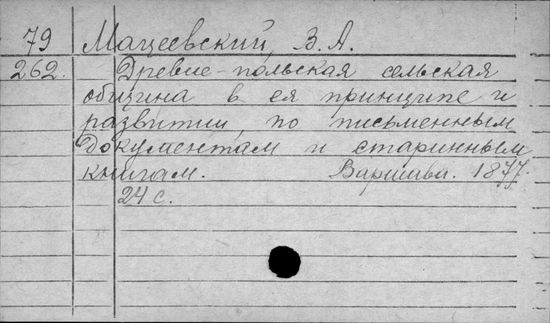 79 Мацеевский, В. А.
262. Древне-польская сельская
община в ея принципе и
развитии, по письменным
документам и старинным
книгам. Варшава. 1877.
24 с.